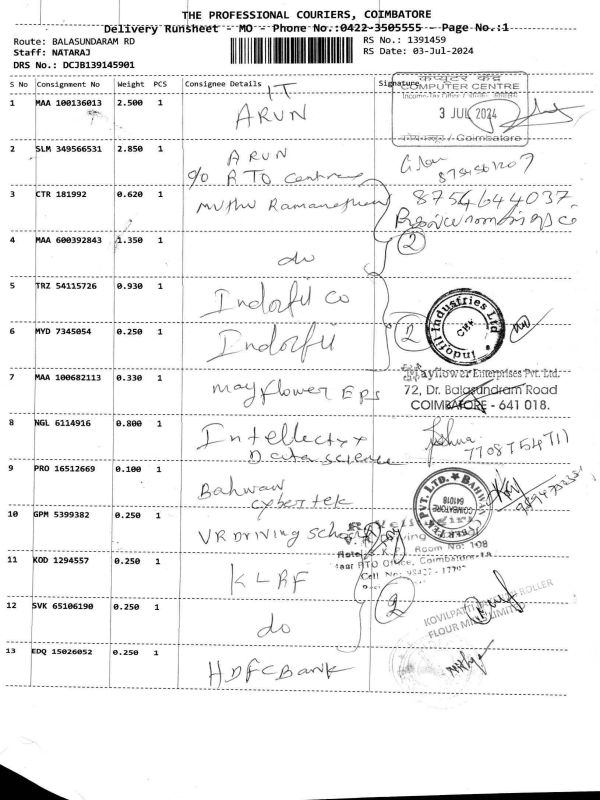 THE PROFESSIONAL COURIERS, COIMBATORE
Delivery Runsheet - MO - Phone No.:0422-3505555 - Page No.:1
Route: BALASUNDARAM RD
RS No.: 1391459
Staff: NATARAJ
RS Date: 03-Jul-2024
DRS No.: DCJB139145901
S No Consignment No Weight PCS Consignee Details Signature
COMPUTER CENTRE
3 JUL 2024
Coimbatore
1 MAA 100136013 2.500 1 IT ARUN
2 SLM 349566531 2.850 1 ARUN
C/o RTO Centre
3 CTR 181992 0.620 1 Muthu Ramanathan
8754644037
4 MAA 600392843 1.350 1 do
2
5 TRZ 54115726 0.930 1 Indofil Co
Indofil Industries Ltd
6 MYD 7345054 0.250 1 Indofil
2
7 MAA 100682113 0.330 1 mayflower EPS
Mayflower Enterprises Pvt. Ltd.
72, Dr. Balasundram Road
COIMBATORE - 641 018.
8 NGL 6114916 0.800 1 Intellectyx
Data science
7708754711
9 PRO 16512669 0.100 1 Bahwan
cybertek
BAHWAN CYBERTEK PVT. LTD.
COIMBATORE
641018
10 GPM 5399382 0.250 1 VR Driving School
Room No: 108
RTO Office, Coimbatore-18
11 KOD 1294557 0.250 1 KLRF
2
12 SVK 65106190 0.250 1 do
KOVILPATTI ROLLER
FLOUR MILLS LIMITED
13 EDQ 15026052 0.250 1 HDFC Bank